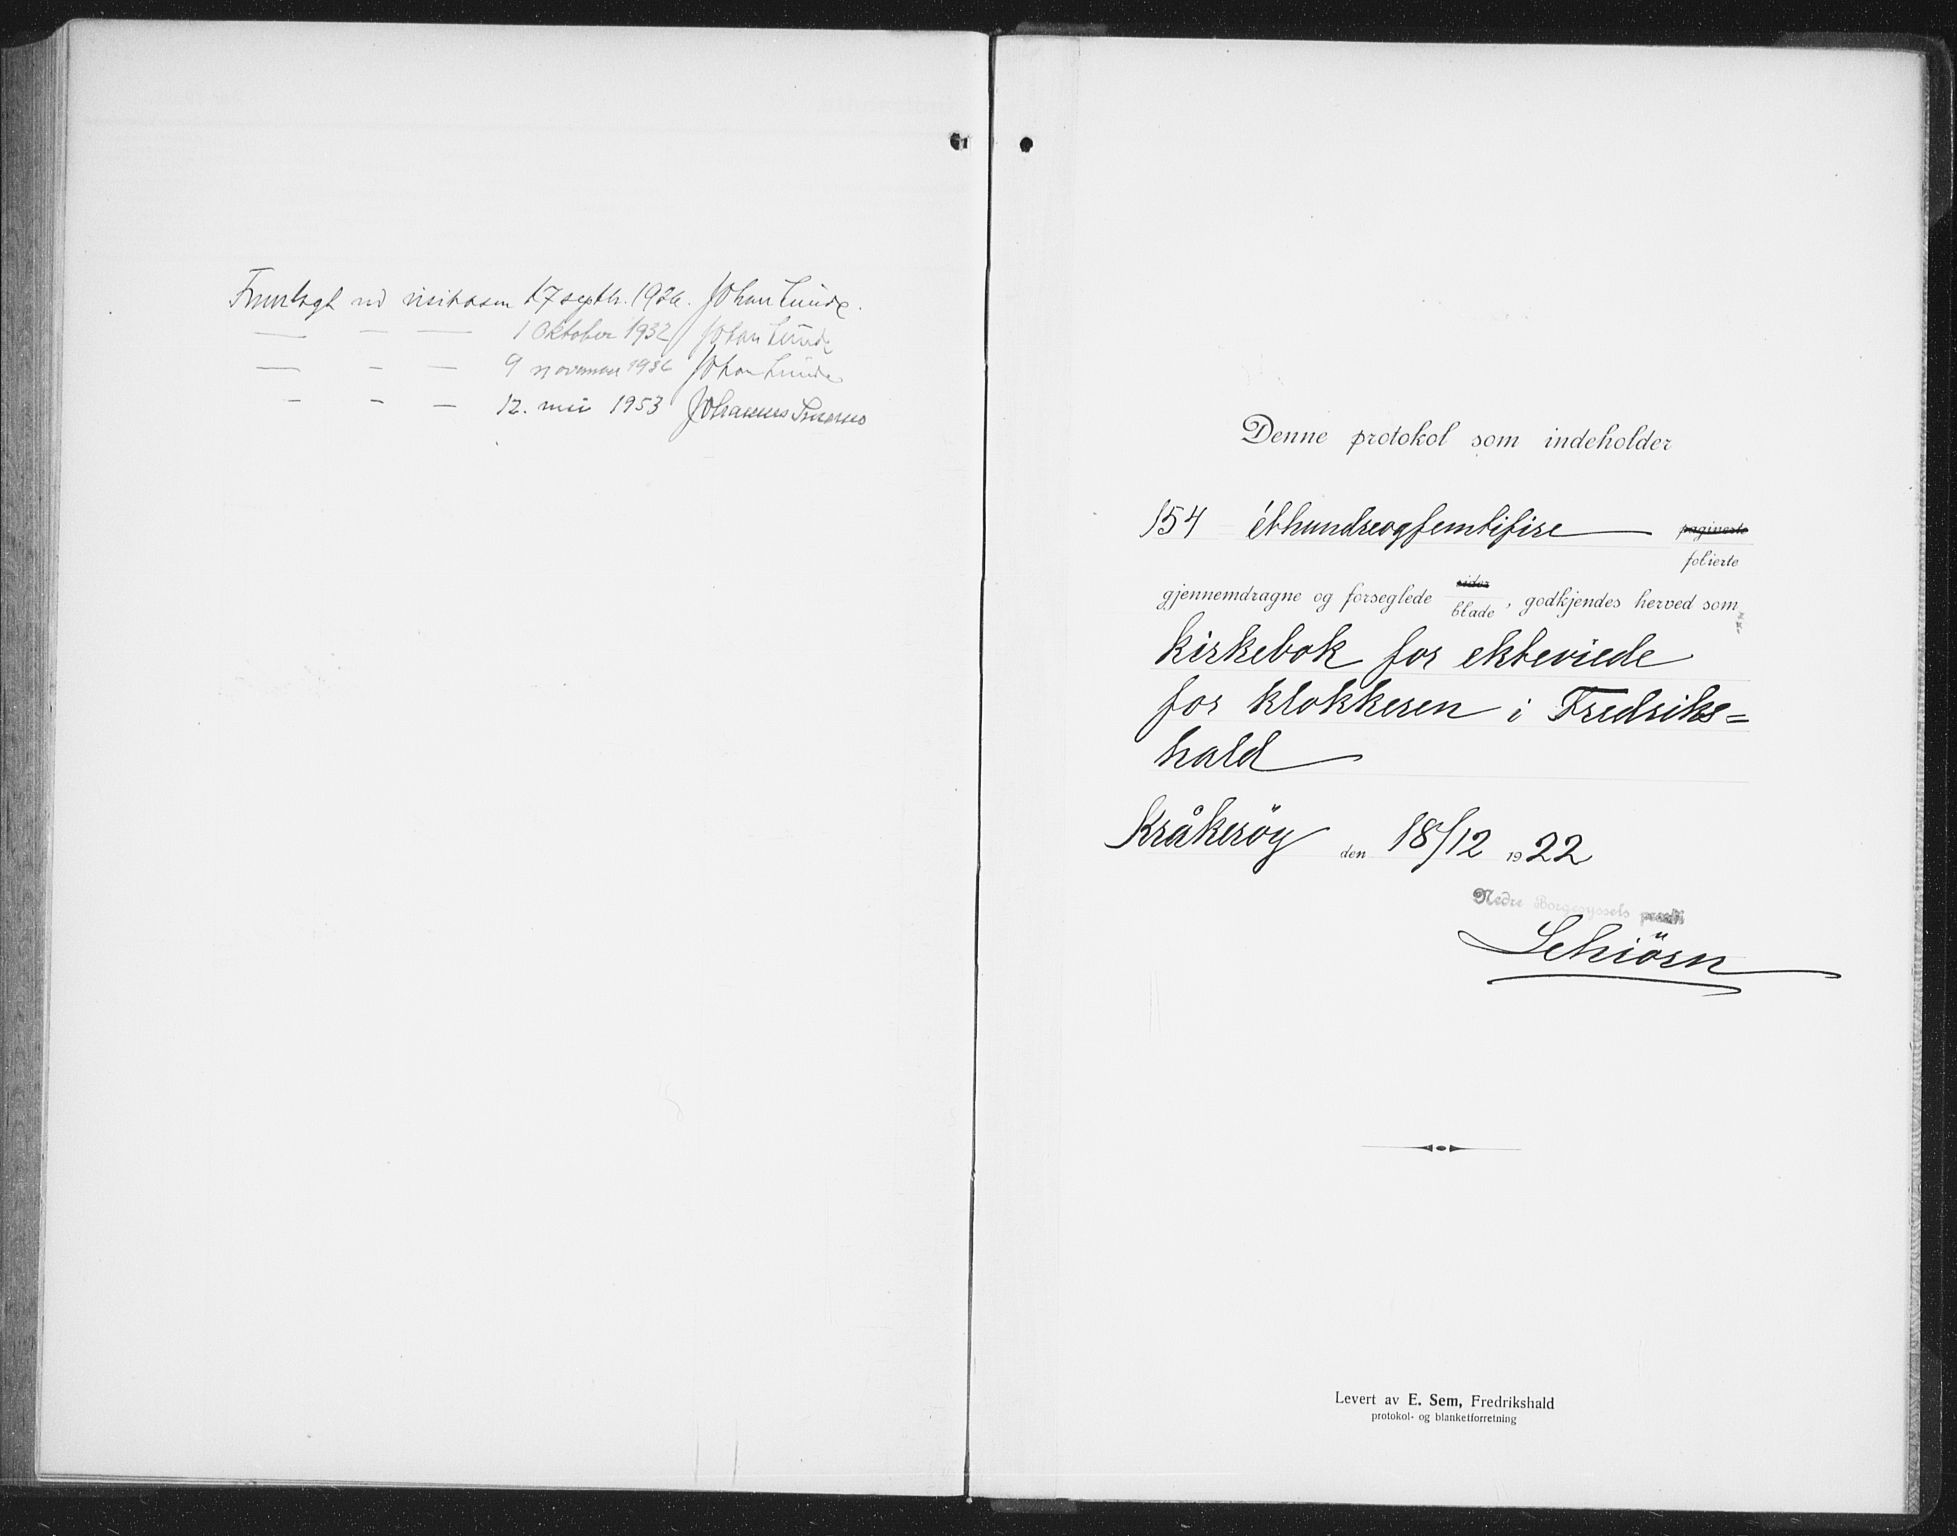 Fremlagt ved visitasen 17 septbr. 1926. Johan Lunde.
— — — 1 oktober 1932 Johan Lunde
— – — 9 november 1936 Johan Lunde
– – — 12. mai 1953 Johannes Smemo
Denne protokol som indeholder
154 éthundreogfemtifire paginerte
folierte
gjennemdragne og forseglede sider
blade, godkjendes herved som
kirkebok for ekteviede
for klokkeren i Fredriks=
hald
Kråkerøy den 18/12 1922
Nedre Borgesyssels prosti
Schiörn
Levert av E. Sem, Fredrikshald
protokol- og blanketforretning